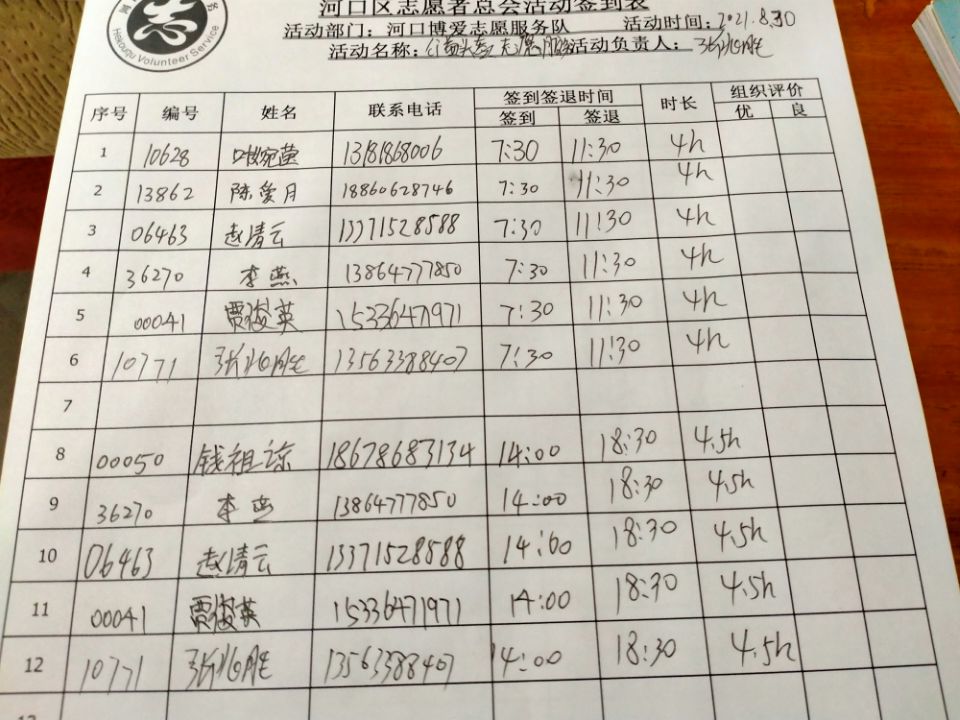 河口区志愿者总会活动签到表
活动部门：河口博爱志愿服务队 活动时间：2021.8.30
活动名称： 志愿服务 活动负责人：张兆胜
Hekouqu Volunteer Service
序号 编号 姓名 联系电话 签到签退时间 时长 组织评价
签到 签退 优 良
1 10628 宛莹 13181868006 7:30 11:30 4h
2 13862 陈爱月 18860628746 7:30 11:30 4h
3 06463 赵清云 13371528588 7:30 11:30 4h
4 36270 李燕 13864777850 7:30 11:30 4h
5 00041 贾俊英 15336471971 7:30 11:30 4h
6 10771 张兆胜 13563388407 7:30 11:30 4h
7
8 00050 钱祖 18678683134 14:00 18:30 4.5h
9 36270 李燕 13864777850 14:00 18:30 4.5h
10 06463 赵清云 13371528588 14:00 18:30 4.5h
11 00041 贾俊英 15336471971 14:00 18:30 4.5h
12 10771 张兆胜 13563388407 14:00 18:30 4.5h